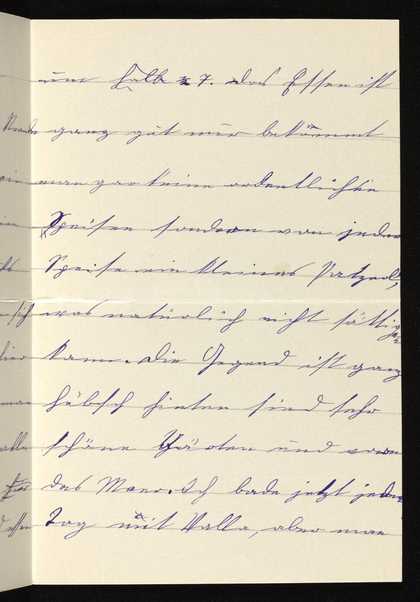 um halb 7. das Essen ist
ganz gut nur bekömmt
man gar keine ordentlichen
Speisen sondern von jeder
Speise ein kleines Patzerl,
was natürlich nicht sättigen
kann. Die Gegend ist ganz
hübsch hinten sind sehr
schöne Gärten und vorn
das Meer. Ich bade jetzt jeden
Tag mit Walla, aber man